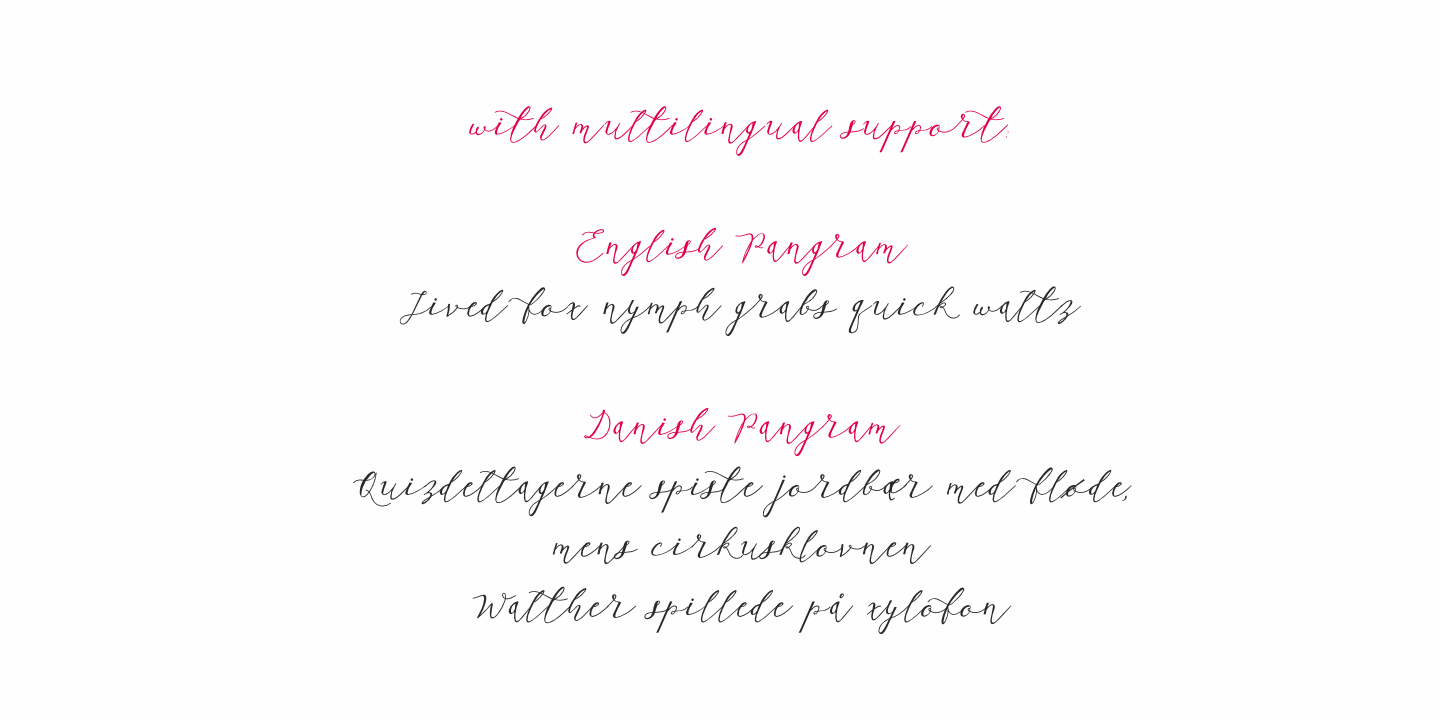 with multilingual support:
English Pangram
Jived fox nymph grabs quick waltz
Danish Pangram
Quizdeltagerne spiste jordbær med fløde,
mens cirkusklovnen
Walther spillede på xylofon